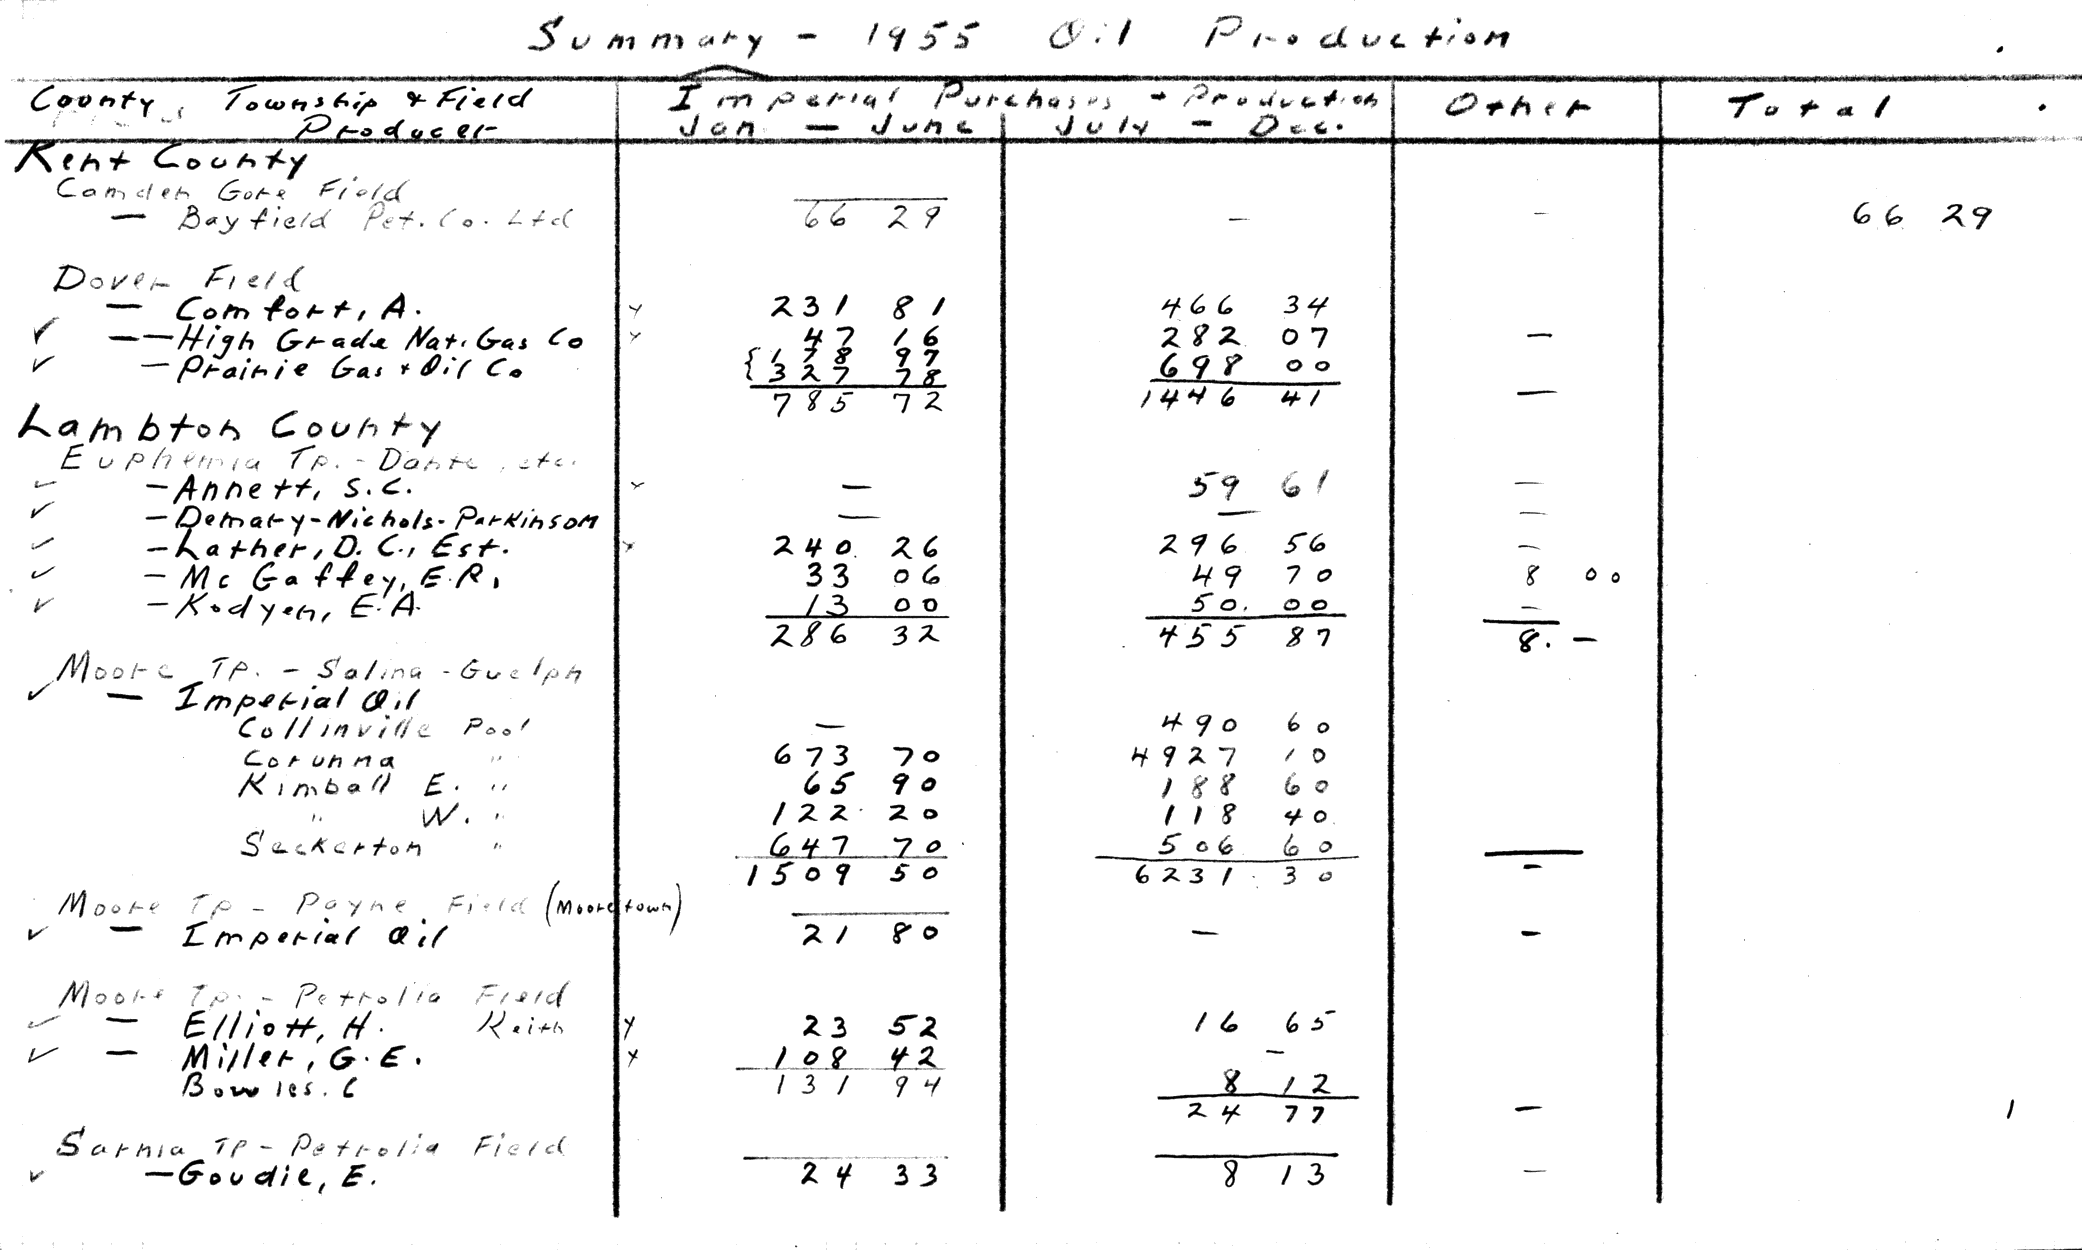 Summary - 1955 Oil Production
County, Township & Field Producer Imperial Purchases + Production Jan - June July - Dec. Other Total
Kent County
Camden Gore Field
— Bayfield Pet. Co. Ltd 66 29 — — 66 29
Dover Field
— Comfort, A. 231 81 466 34
✓ —— High Grade Nat. Gas Co 47 16 282 07 —
✓ — Prairie Gas + Oil Co { 178 97 327 78 698 00
785 72 1446 41 —
Lambton County
Euphemia Tp. - Dante, etc.
✓ — Annett, S.C. — 59 61 —
✓ — Demary-Nichols-Parkinson — — —
✓ — Lather, D.C., Est. 240 26 296 56 —
✓ — McGaffey, E.R. 33 06 49 70 8 00
✓ — Kodyen, E.A. 13 00 50. 00 —
286 32 455 87 8. —
Moore TP. - Salina-Guelph
✓ — Imperial Oil
Collinville Pool — 490 60
Corunna " 673 70 4927 10
Kimball E. " 65 90 188 60
" W. " 122 20 118 40
Seckerton " 647 70 506 60
1509 50 6231 30 —
Moore Tp - Payne Field (Mooretown)
✓ — Imperial Oil 21 80 — —
Moore Tp. - Petrolia Field
✓ — Elliott, H. Keith 23 52 16 65
✓ — Miller, G.E. 108 42 —
Bowles. C 8 12
131 94 24 77 —
Sarnia TP - Petrolia Field
✓ — Goudie, E. 24 33 8 13 —